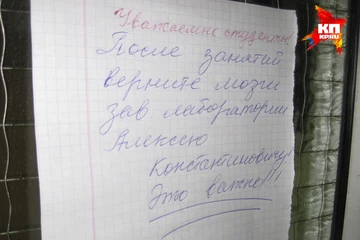 КП
KP.RU
Уважаемые студенты!
После занятий
верните мозги
зав лаборатории
Алексею
Константиновичу!
Это важно!